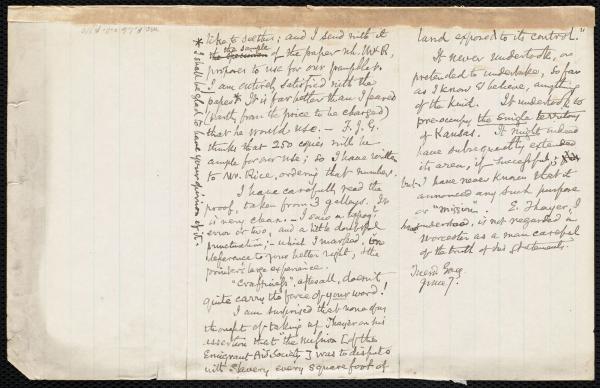 like to see this; and I send with it
the sample
the specimen of the paper wh. W.R.
proposes to use for our pamphlet.
I am entirely satisfied with the
paper.* It is far better than I feared
(partly from the price to be charged)
that he would use. — F.J.G.
thinks that 250 copies will be
ample for our use; so I have written
to Mr. Rice, ordering that number.
I have carefully read the
proof, taken from 3 galleys. It
is very clean. — I saw a typog!
error or two, and a little doubtful
punctuation; — which I marked, in
deference to your better right, & the
printer's large experience.
"Craftiness", after all, doesn't
quite carry the force of your word!
I am surprised that none of us
thought of taking up Thayer on his
assertion that "the Mission [of the
Emigrant Aid Society] was to dispute
with Slavery every square foot of
* I shall be glad to have your opinion of it.
land exposed to its control."
It never undertook, or
pretended to undertake, so far
as I know & believe, anything
of the kind. It undertook to
pre-occupy the single territory
of Kansas. It might indeed
have subsequently extended
its area, if successful;
but I have never known that it
announced any such purpose
or "mission". E. Thayer, I
understand, is not regarded in
Worcester as a man careful
of the truth of his statements.
Tuesd
June 7.